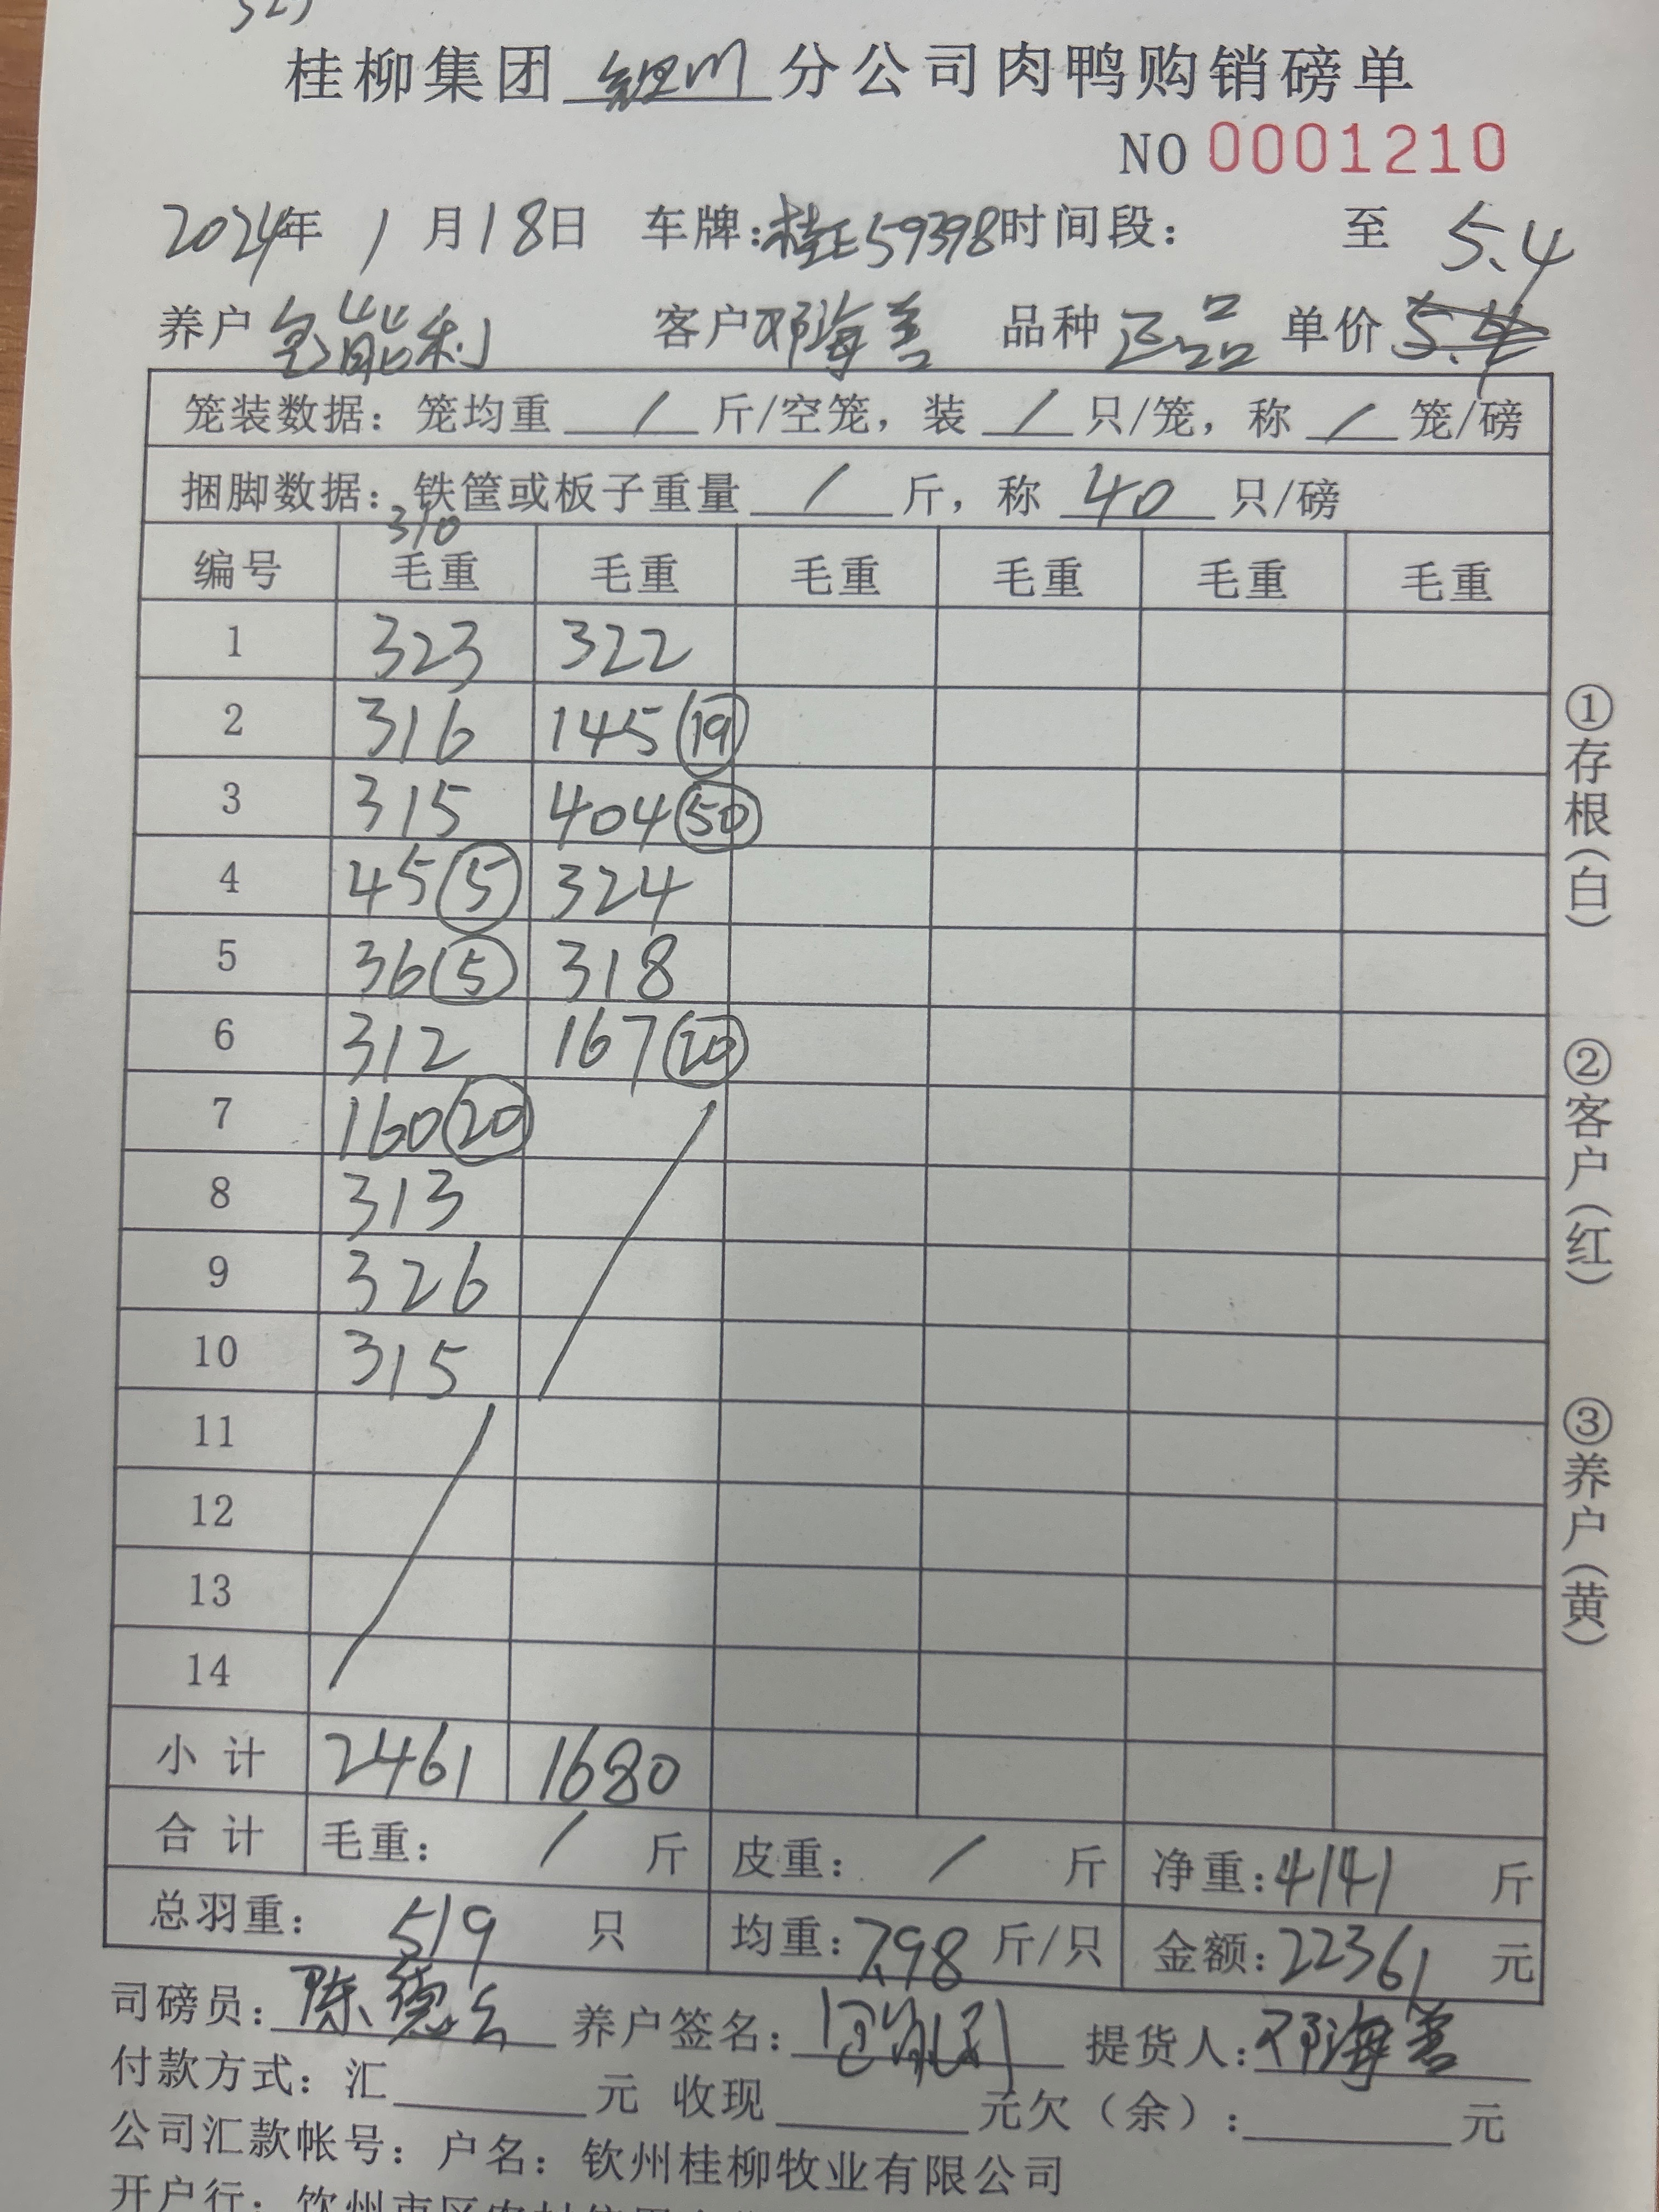 桂柳集团 分公司肉鸭购销磅单
NO 0001210
2024年 1月18日 车牌:桂E59398 时间段: 至 5.4
养户 包能利 客户 邓海善 品种 正品 单价 5.4
笼装数据: 笼均重 / 斤/空笼, 装 / 只/笼, 称 / 笼/磅
捆脚数据: 铁筐或板子重量 / 斤, 称 40 只/磅
310
编号 毛重 毛重 毛重 毛重 毛重 毛重
1 323 322
2 316 145 19
3 315 404 50
4 45 5 324
5 36 5 318
6 312 167 20
7 160 20
8 313
9 326
10 315
11
12
13
14
小计 2461 1680
合计 毛重: / 斤 皮重: / 斤 净重:4141 斤
总羽重: 519 只 均重:7.98 斤/只 金额:22361 元
司磅员: 陈德 养户签名: 提货人: 邓海善
付款方式: 汇 元 收现 元 欠(余): 元
公司汇款帐号: 户名: 钦州桂柳牧业有限公司
开户行: 钦州市区农村信用
①存根(白)
②客户(红)
③养户(黄)